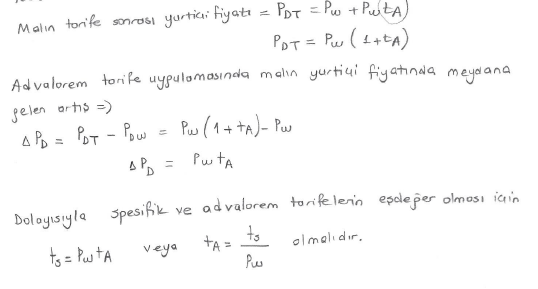 Malın tarife sonrası yurtiçi fiyatı = P_DT = P_w + P_w t_A
P_DT = P_w (1+t_A)
Advalorem tarife uygulamasında malın yurtiçi fiyatında meydana
gelen artış =>
Δ P_D = P_DT - P_DW = P_w (1 + t_A) - P_w
Δ P_D = P_w t_A
Dolayısıyla spesifik ve advalorem tarifelerin eşdeğer olması için
t_s = P_w t_A veya t_A = t_s / P_w olmalıdır.